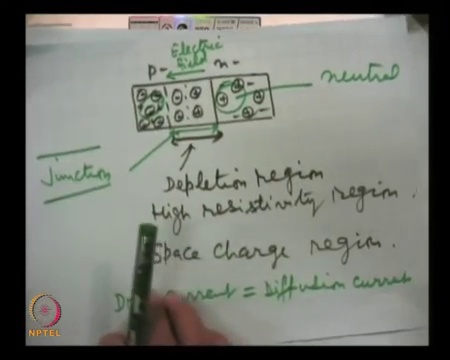 Electric
field
p- n-
neutral
Junction
Depletion region
High resistivity region.
Space Charge region.
Current = Diffusion Current
NPTEL